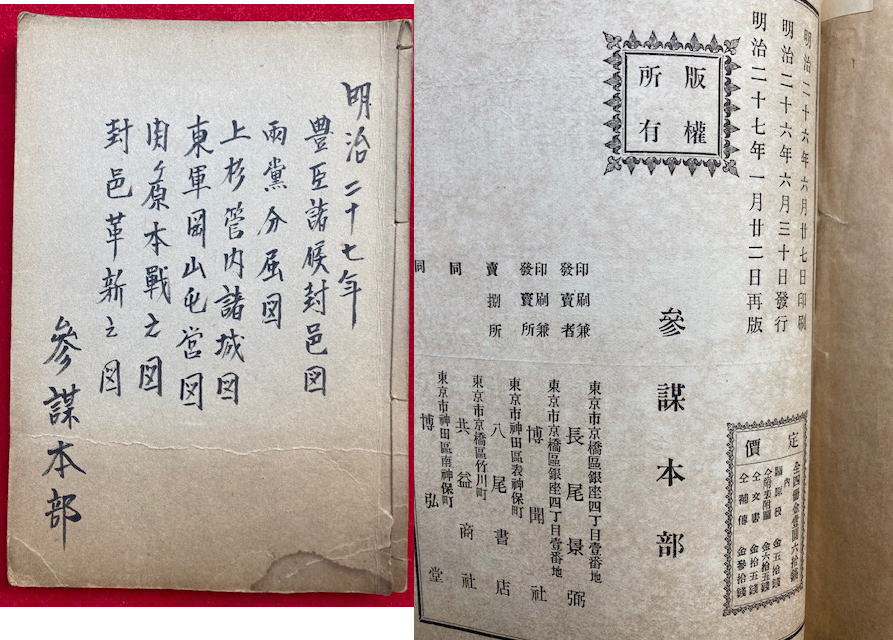 明治二十七年
豊臣諸候封邑図
両党分屈図
上杉管内諸城図
東軍岡山屯営図
関ヶ原本戦之図
封邑革新之図
參謀本部
明治二十六年六月廿七日印刷
明治二十六年六月三十日發行
明治二十七年一月廿二日再版
版權
所有
參謀本部
定價
全四冊金壹圓六拾錢
內
金五拾錢
仝附表附圖 金六拾五錢
仝文書 金拾五錢
仝補傳 金參拾錢
印刷兼
發賣者
東京市京橋區銀座四丁目壹番地
長尾景弼
印刷兼
發賣所
東京市京橋區銀座四丁目壹番地
博聞社
賣捌所
東京市神田區表神保町
八尾書店
同
東京市京橋區竹川町
共益商社
同
東京市神田區南神保町
博弘堂